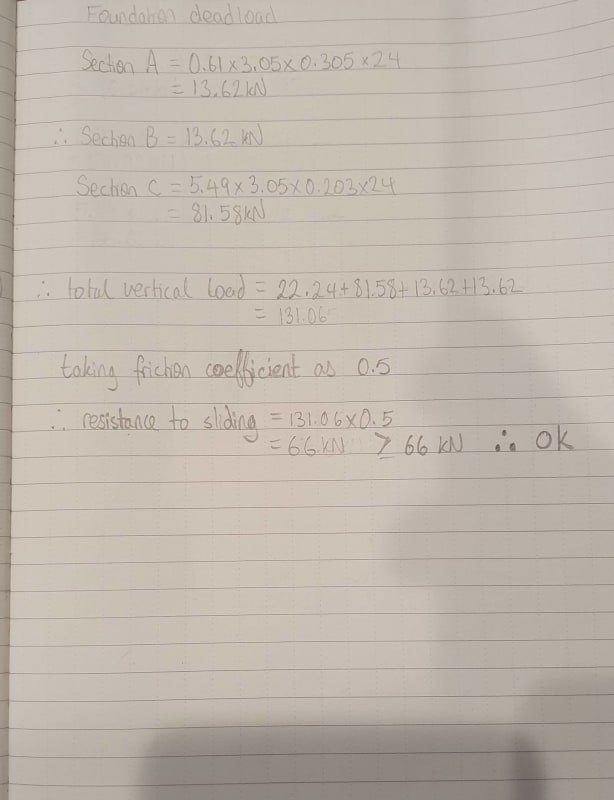 Foundation deadload
Section A = 0.61 x 3.05 x 0.305 x 24
= 13.62 kN
∴ Section B = 13.62 kN
Section C = 5.49 x 3.05 x 0.203 x 24
= 81.58 kN
∴ total vertical load = 22.24 + 81.58 + 13.62 + 13.62
= 131.06
taking friction coefficient as 0.5
∴ resistance to sliding = 131.06 x 0.5
= 66 kN ≥ 66 kN ∴ OK